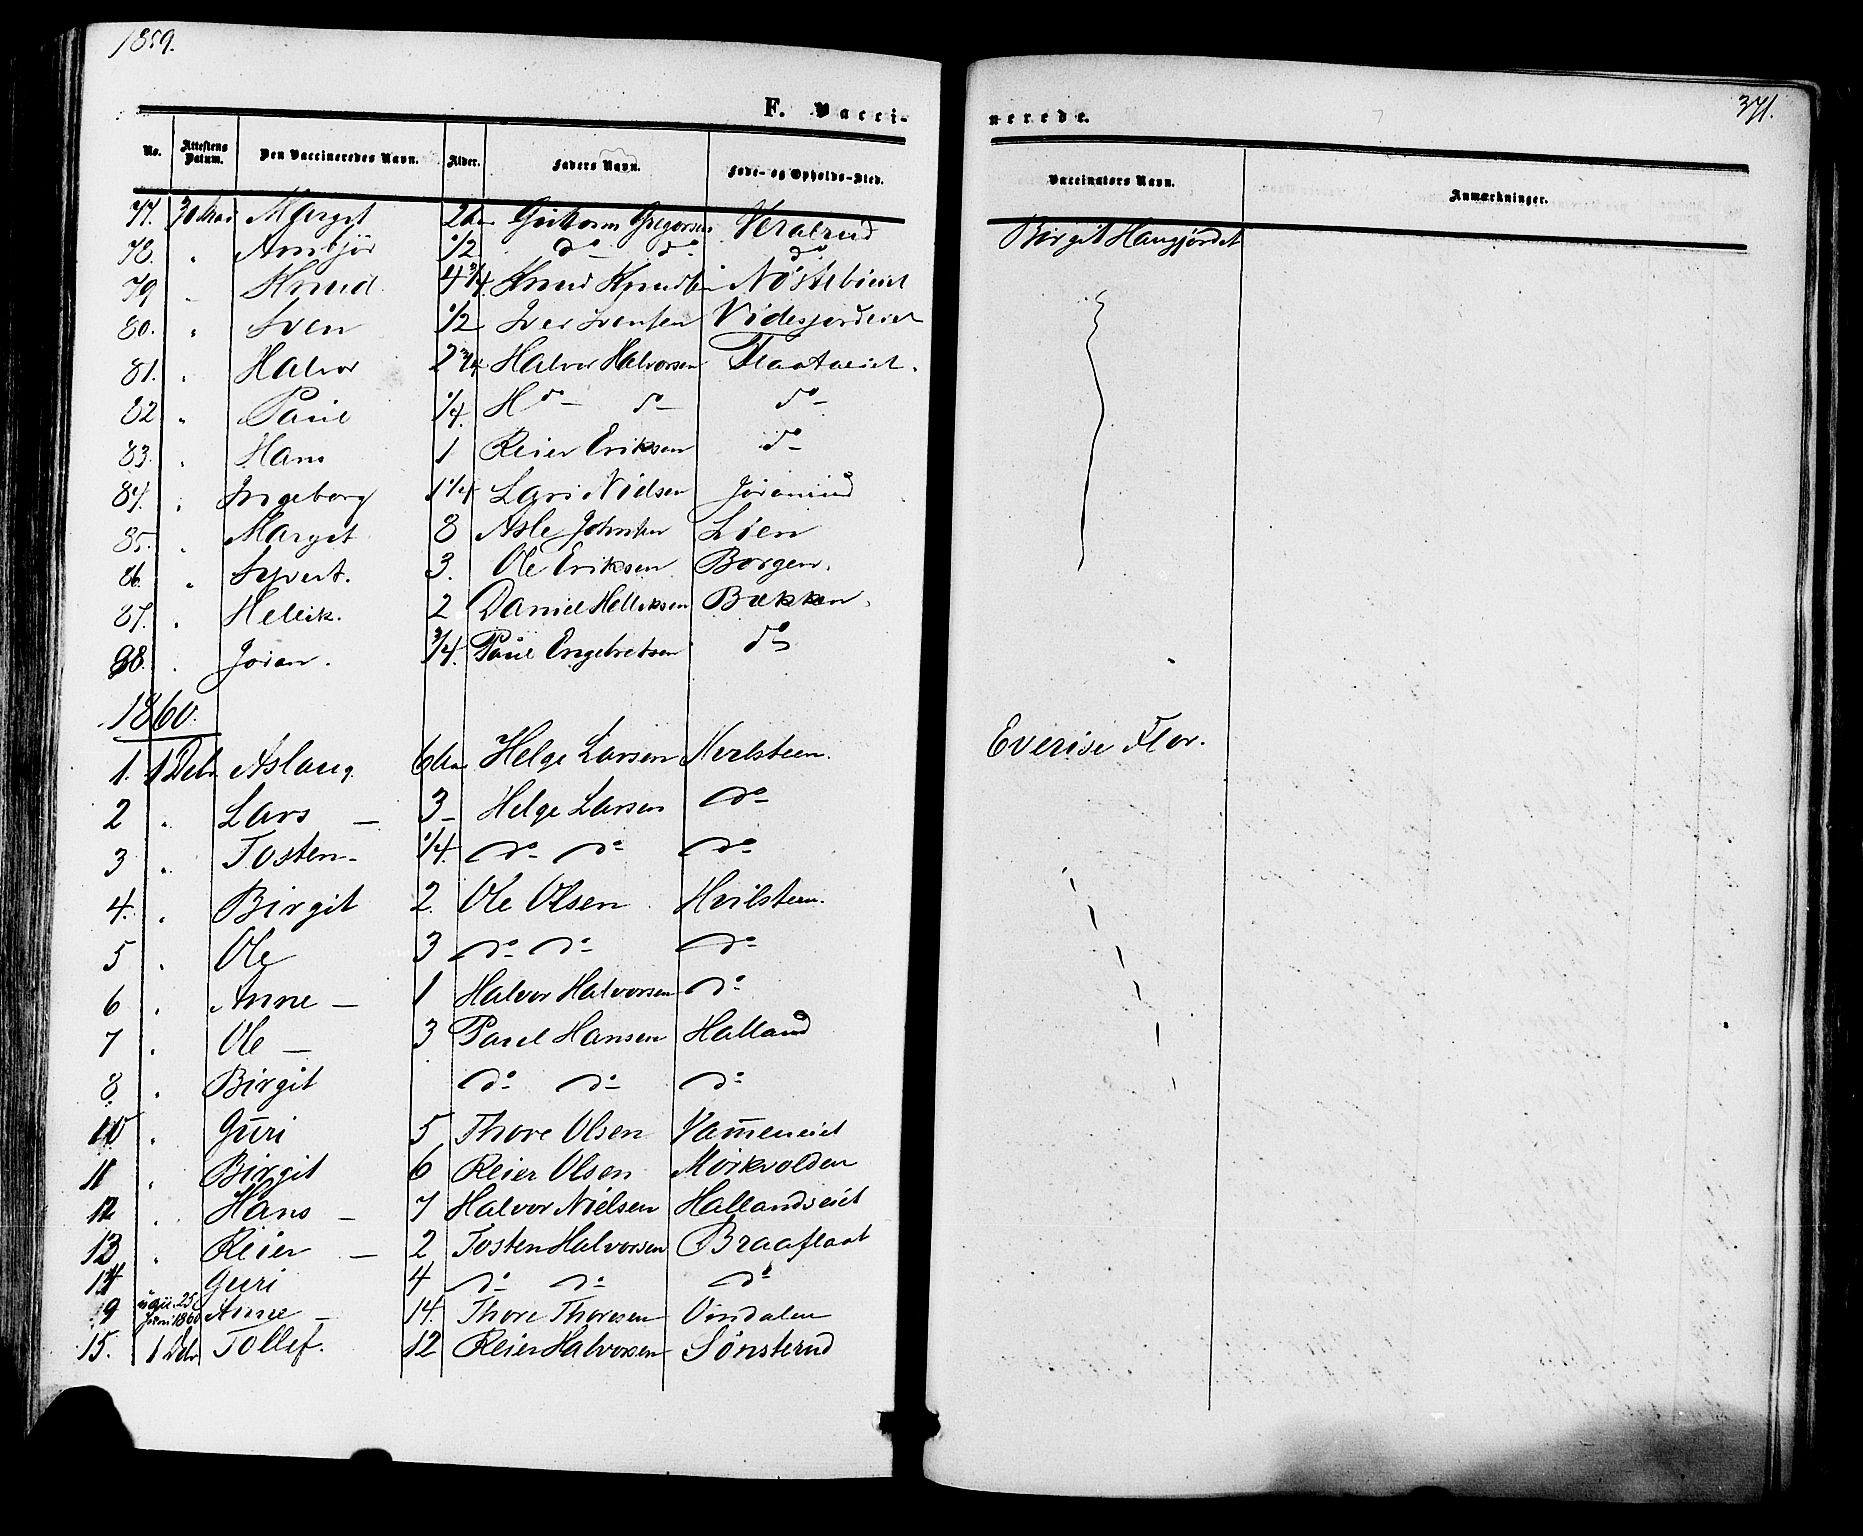 1859.
371.
F. Vaccinerede.
No. Attestens Datum. Den Vaccineredes Navn. Alder. Faders Navn. Føde- og Opholds-Sted. Vaccinators Navn. Anmærkninger.
77. 30 Margit 2 Gregorsen Birgit Haugjordet
78. " Ambjør 1/2 do do do
79 " Knud 4 3/4 Knud
80. " Sven 1/2
81. " Halvor 2 3/4 Halvor Halvorsen
82 " Paul 1/4 H do - do - do -
83. " Hans 1 Reier Eriksen do -
84. " Ingeborg 1 1/4 Lars Nielsen
85. " Margit 8 Asle Lien
86. " Syvert. 3. Ole Eriksen Borgen.
87. " Hellik. 2 Daniel Helliksen Bækken.
88. " Joran. 3/4. Paul Engebretsen do
1860.
1. 1 Aslaug 6 Helge Larsen Evensi Flor.
2 " Lars - 3 - Helge Larsen do -
3 " Tosten - 1/4. do - do - do
4. " Birgit 2. Ole Olsen Hvilsteen.
5 " Ole 3 do - do - do -
6 " Anne - 1 Halvor Halvorsen do -
7 " Ole - 3 Paul Hansen Halland
8 " Birgit do - do - do -
10 " Guri 5 Thore Olsen
11 " Birgit 6 Reier Olsen Mörkvolden
12 " Hans - 7 Halvor Nielsen Hallandseiet
13 " Reier - 2 Tosten Halvorsen Braaflaat
14 " Guri 4 do - do - do
9 25 Juni 1860 Anne - 14. Thore Thoresen Vindalen
15. 1 Tollef. 12 Reier Halvorsen Sønsterud